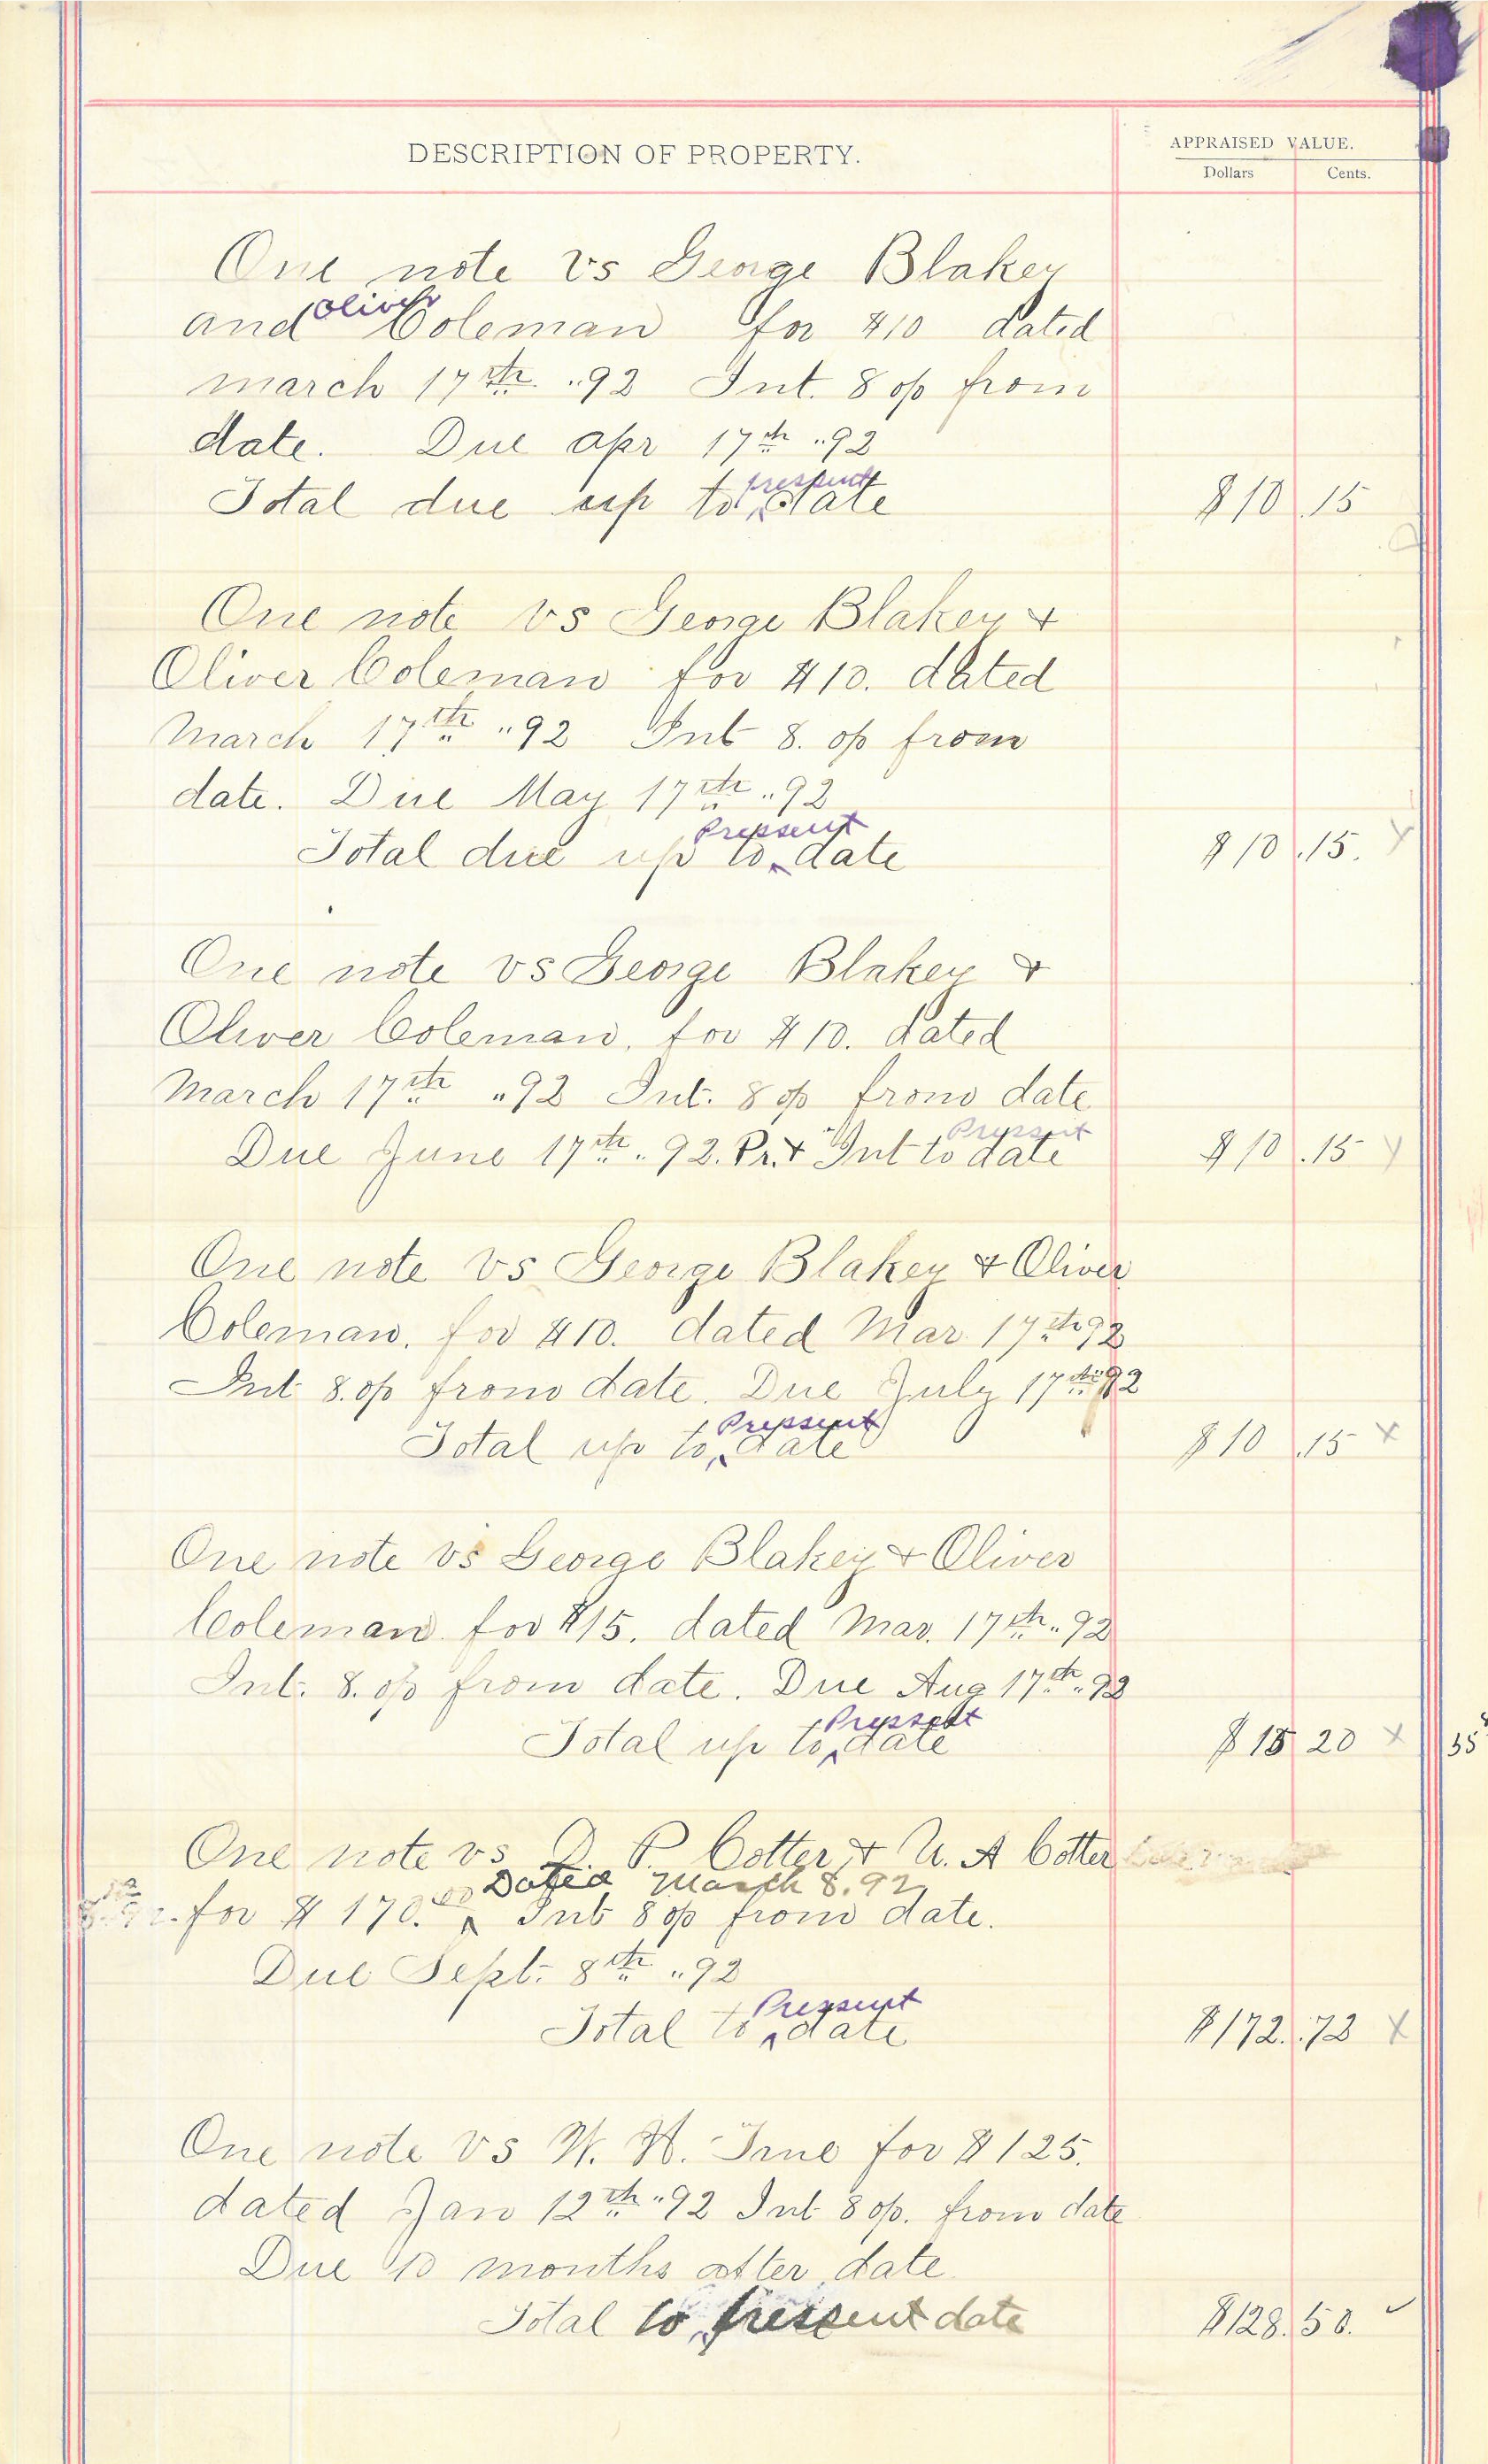 DESCRIPTION OF PROPERTY.
APPRAISED VALUE.
Dollars Cents.
One note vs George Blakey
and Oliver Coleman for $10 dated
march 17th "92 Int. 8 op from
date. Due apr 17th "92
Total due up to pressent date $10 .15
One note vs George Blakey +
Oliver Coleman for $10. dated
March 17th "92 Int 8. op from
date. Due May 17th "92
Total due up to Pressent date $10 .15.
One note vs George Blakey +
Oliver Coleman. for $10. dated
March 17th "92 Int. 8 op from date
Due June 17th " 92. Pr. + Int to Pressent date $10 .15
One note vs George Blakey + Oliver
Coleman. for $10. dated Mar 17th 92
Int 8. op from date. Due July 17th 92
Total up to Pressent date $10 .15 x
One note vs George Blakey + Oliver
Coleman for $15. dated Mar. 17th "92
Int. 8. op from date. Due Aug 17th "92
Total up to Pressent date $15 20 x
One note vs P. Cotter + U. A Cotter
Dated March 8. 92
for $170.00 Int 8 op from date.
Due Sept. 8th "92
Total to Pressent date $172. .72 x
One note vs W. H. True for $125.
dated Jan 12th "92 Int 8 op. from date
Due 10 months after date
Total to pressent date $128. 50.